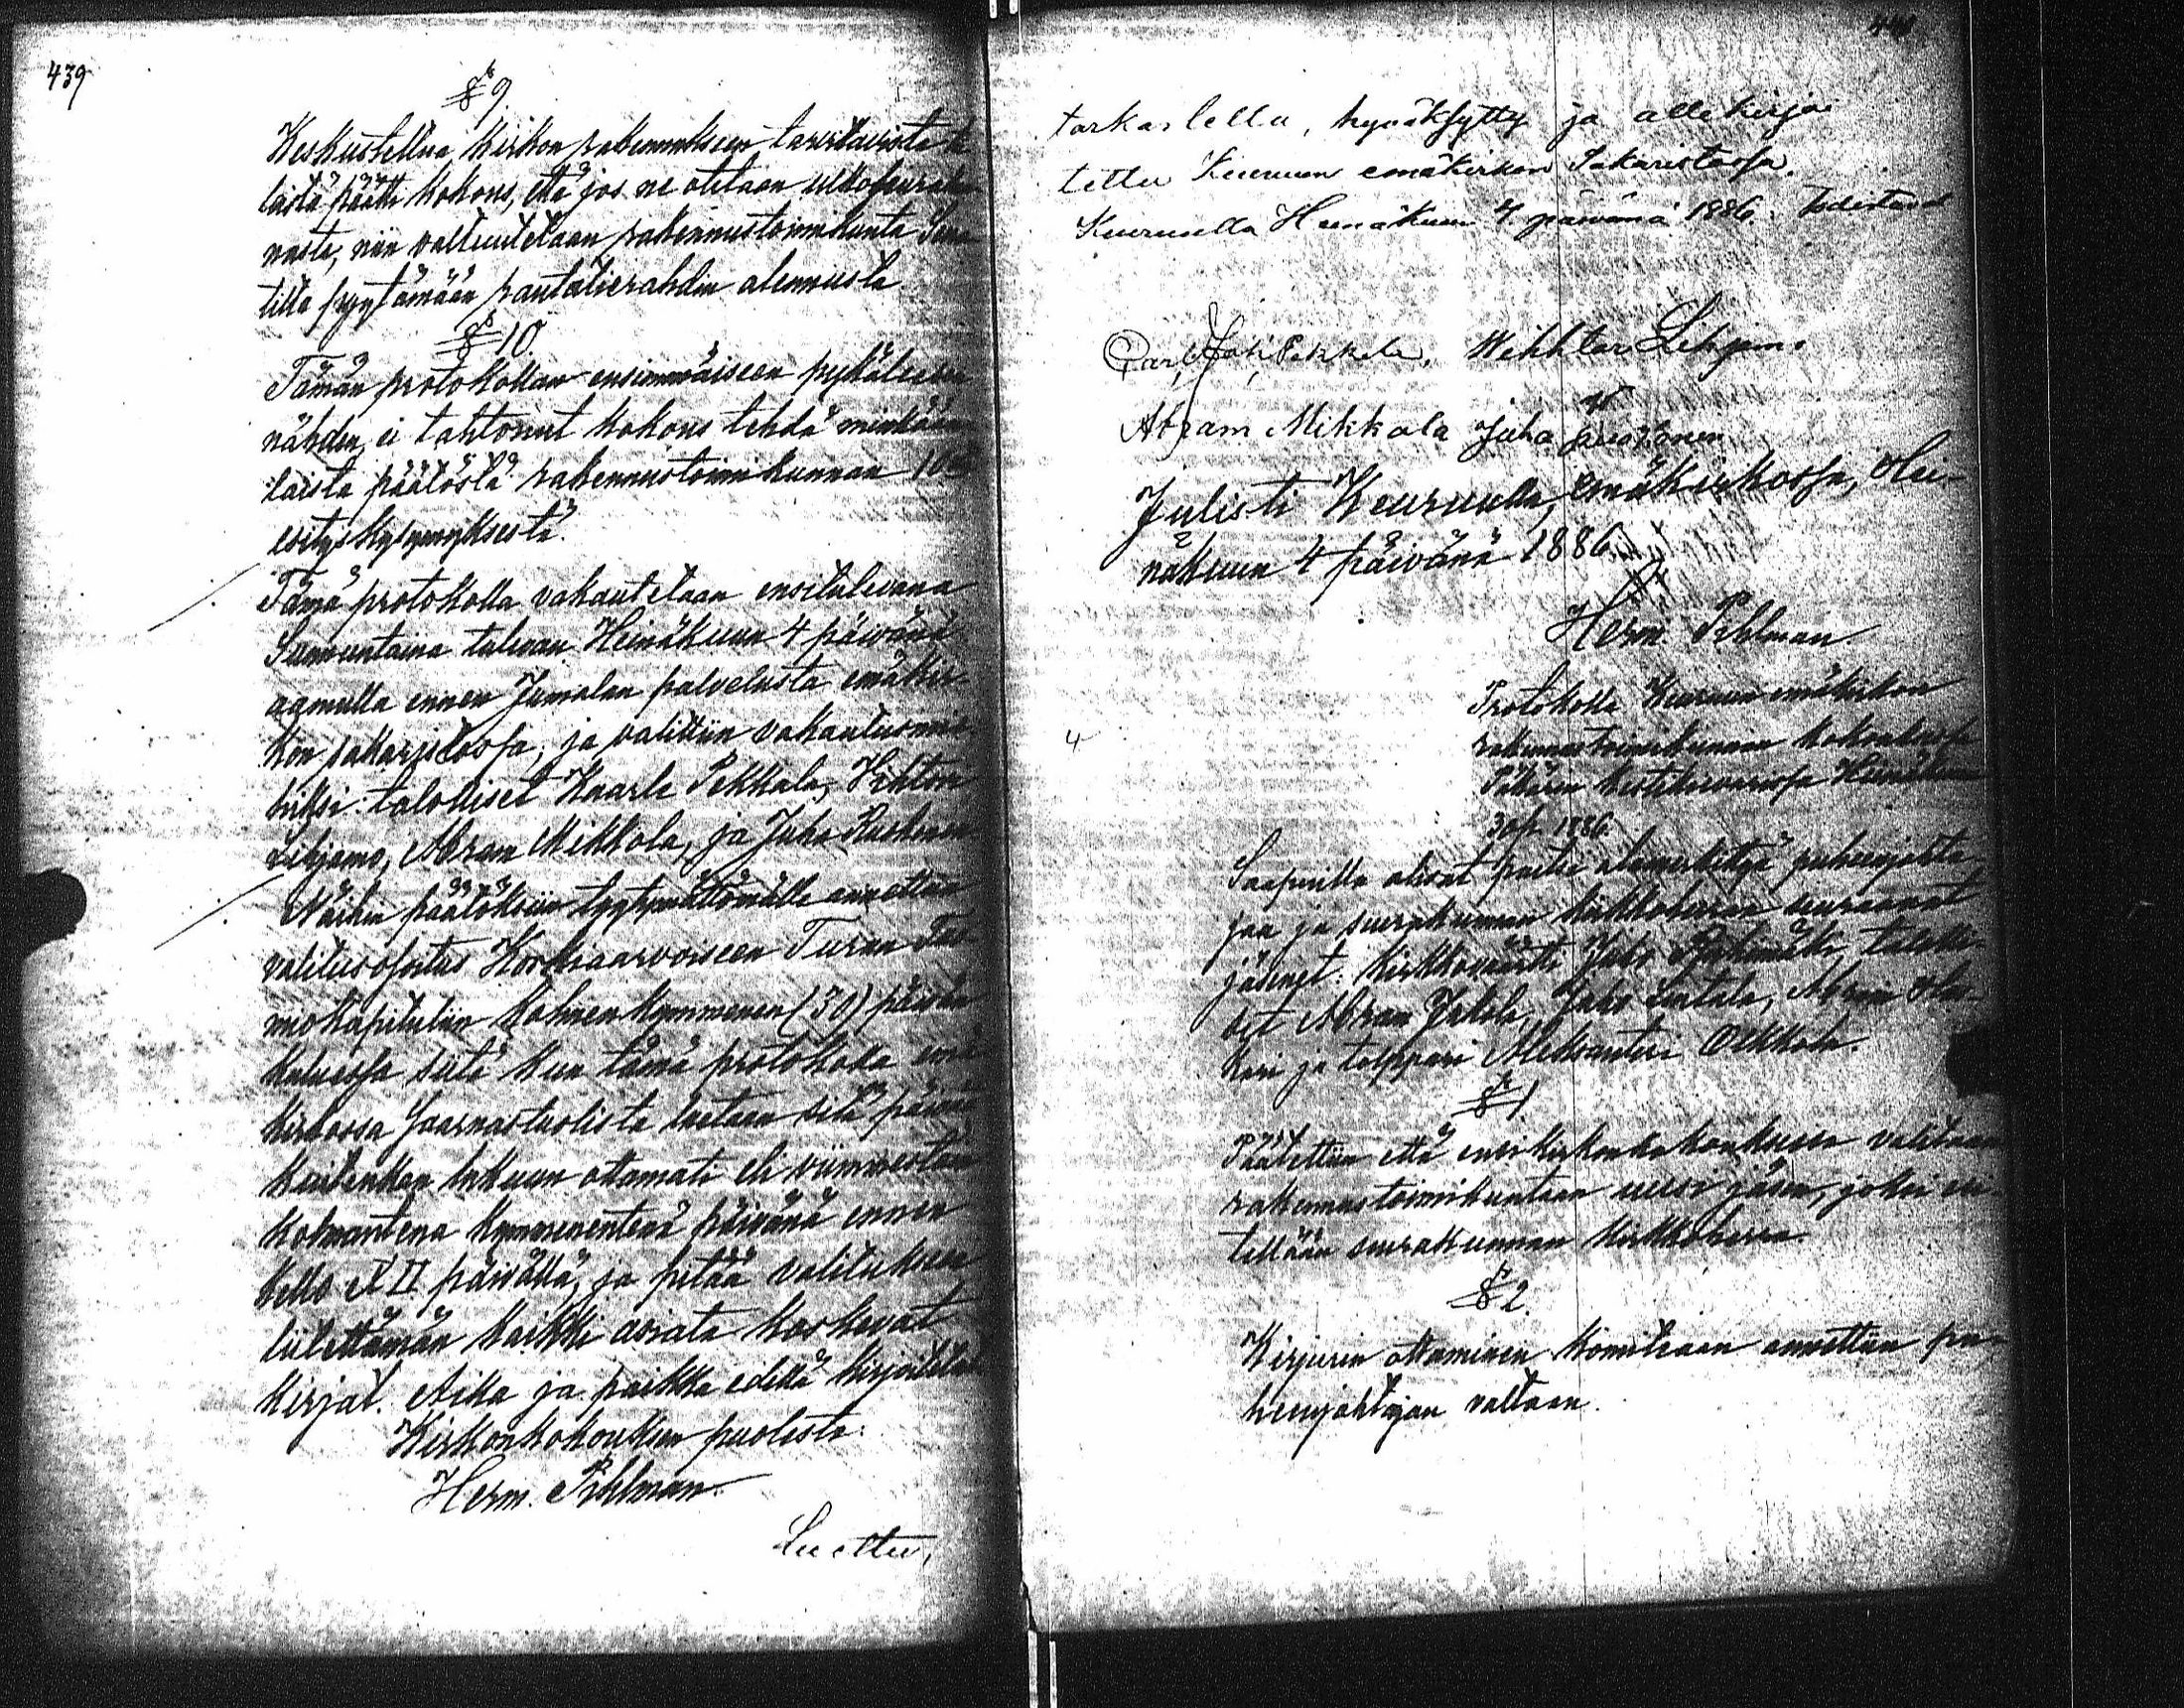 439
§ 9.
Keskustellua kirkon rakennukseen tarvittavista
laista päätti kokous, että jos ne otetaan ulkoseurakun
nasta, niin valtuutetaan rakennustoimikunta Sena
tilta pyytämään rautatierahdin alennusta
§ 10.
Tämän protokollan ensimmäiseen pykälään
nähden ei tahtonut kokous tehdä minkään
laista päätöstä rakennustoimikunnan
esitys kysymyksestä.
Tämä protokolla vakautetaan ensitulevana
Sunnuntaina tulevan Heinäkuun 4 päivänä
aamulla ennen Jumalan palvelusta emäkir-
kon sakaristossa, ja valittiin vakautusmie
hiksi talolliset Kaarle Pekkala, Vihtori
Lihjamo, Abram Mikkola, ja Juho
Näihin päätöksiin tyytymättömälle annettiin
valitusosoitus Korkiaarvoiseen Turun Tuo
miokapituliin kolmenkymmenen (30) päivän
kuluessa siitä kun tämä protokolla
kirkossa Saarnastuolista luetaan sitä päivää
kuitenkan lukuun ottamati eli viimmeistään
kolmantena kymmenentenä päivänä ennen
kello XII päivällä, ja pitää valituksen
liitettämän kaikki asiata koskevat
kirjat. Aika ja paikka edellä kirjoitetut
Kirkonkokouksen puolesta:
Herm. Pihlman.
Luettu,
tarkastellu, hyväksytty ja allekirjoi
tettu Keuruun emäkirkon Sakaristossa.
Keuruulla Heinäkuun 4 päivänä 1886. Todistavat
Carl Pekkala. Wihhtor Lihjamo
Abram Mikkola Juha
Julisti Keuruulla, emäkirkossa, Hei-
näkuun 4 päivänä 1886.
Herm. Pihlman
Protokolla Keuruun emäkirkon
rakennustoimikunnan kokouksessa
kestikievarissa Heinäkuun
3 p. 1886.
4
Saapuvilla olivat paitsi allamerkittyä puheenjohta-
jaa ja seurakunnan kirkkoherraa seuraavat
jäsenet: kirkkoväärti Juho talolli-
set Abram Jukola, Juho Abram
kari ja torppari Aleksanteri Oekkola.
§ 1
Päätettiin että ensi kirkonkokouksessa valitaan
rakennustoimikuntaan uusi jäsen, joksi esi-
tellään seurakunnan kirkkoherra
§ 2.
Kirjurin ottaminen komiteaan annettiin pu-
heenjohtajan valtaan.